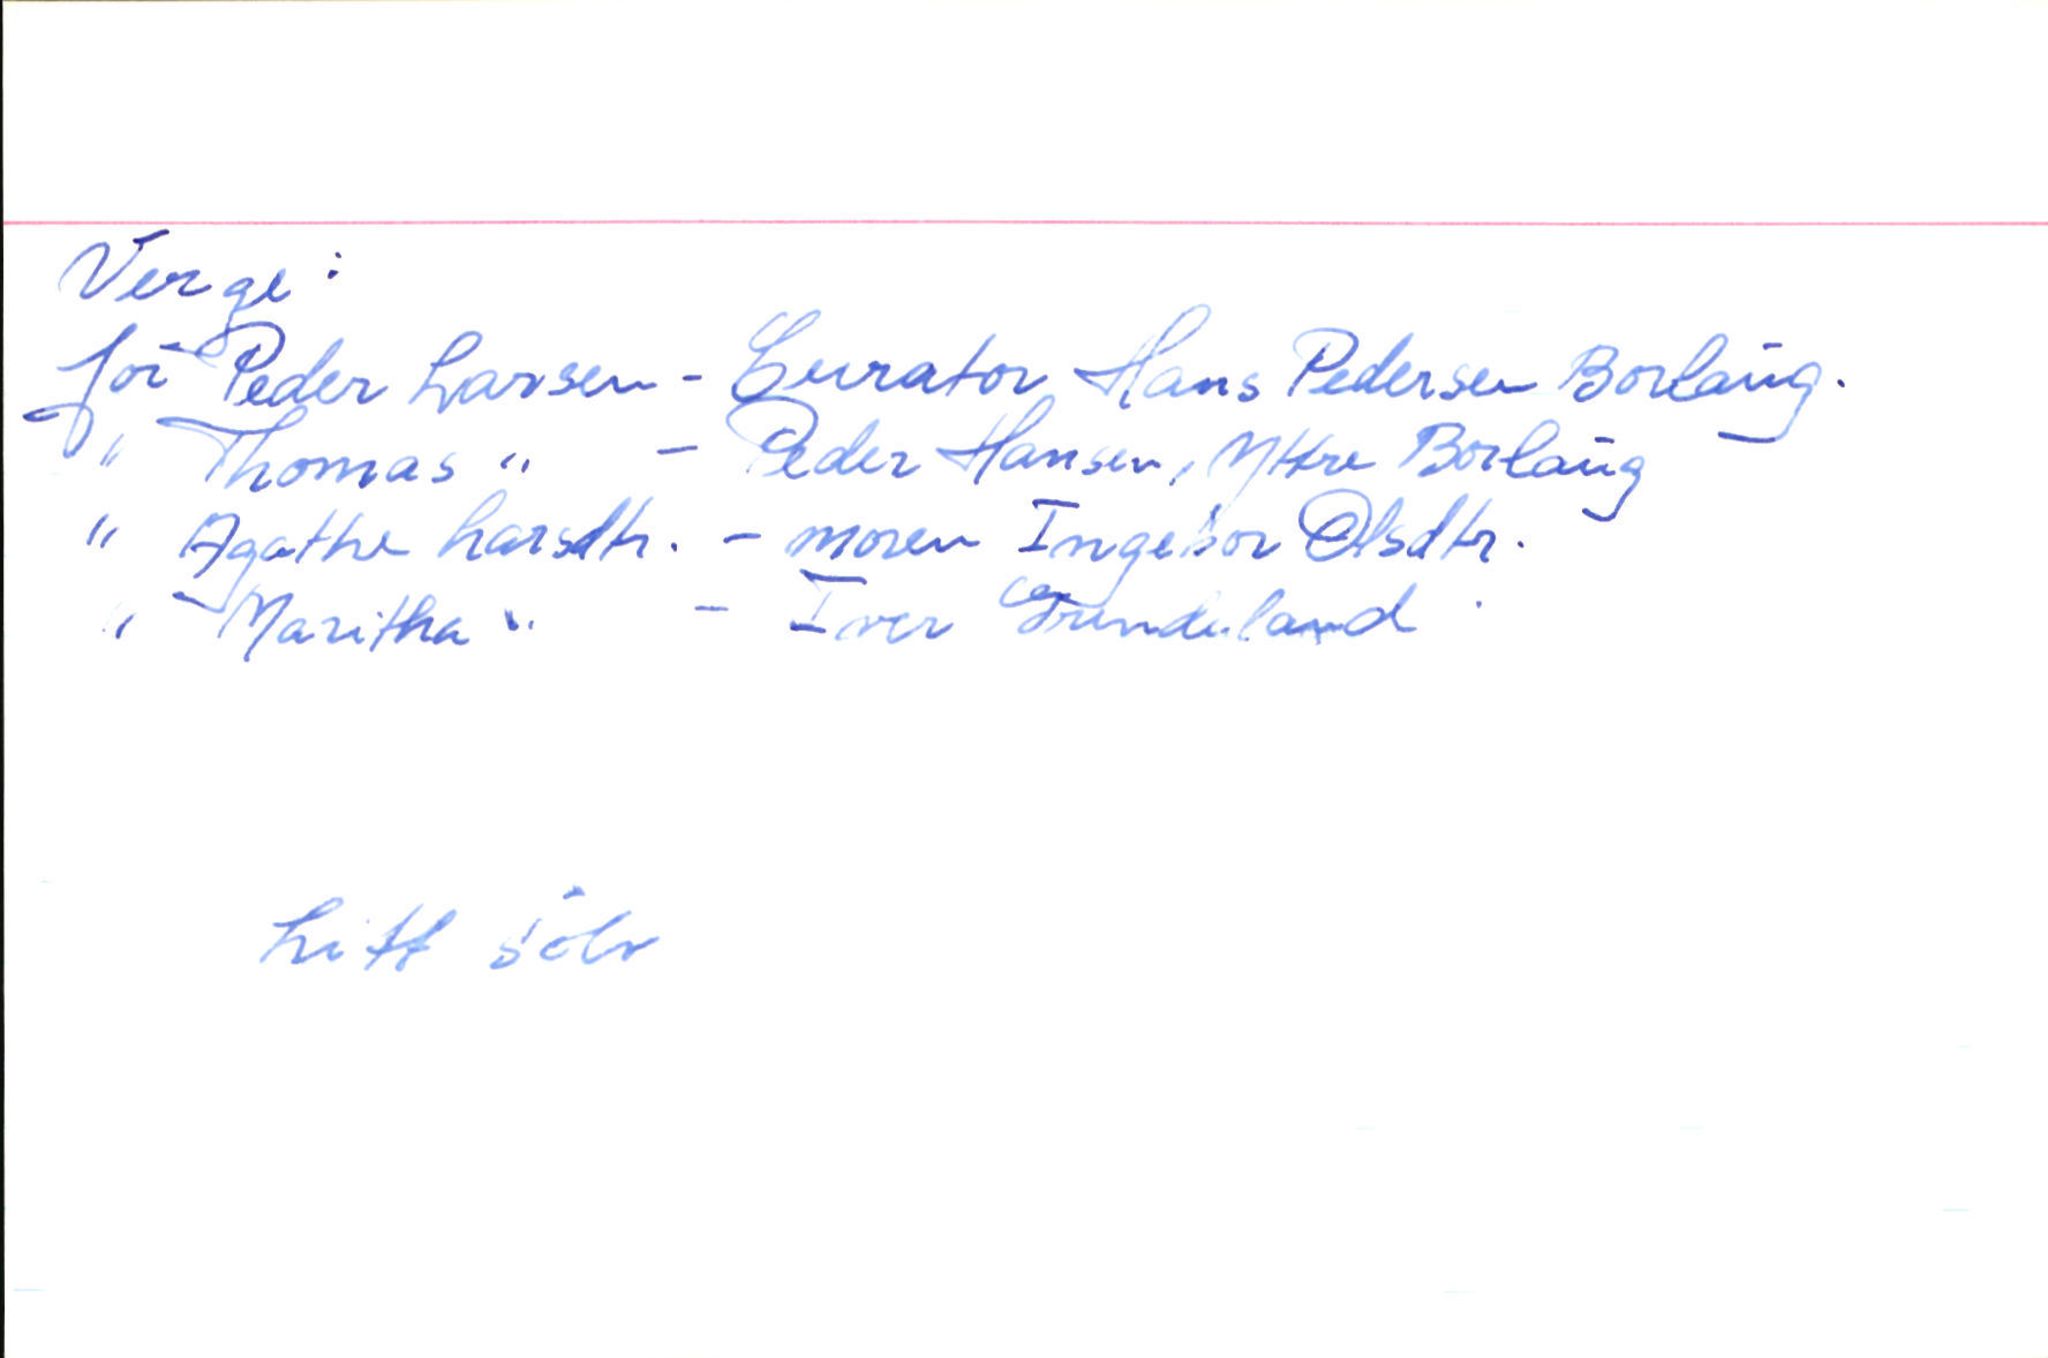 Verge:
for Peder Larsen - Curator Hans Pedersen Borlaug.
" Thomas " - Peder Hansen, Ytre Borlaug
" Agathe Larsdtr. - moren Ingebor Olsdtr.
" Maritha " - Iver
Litt sölv